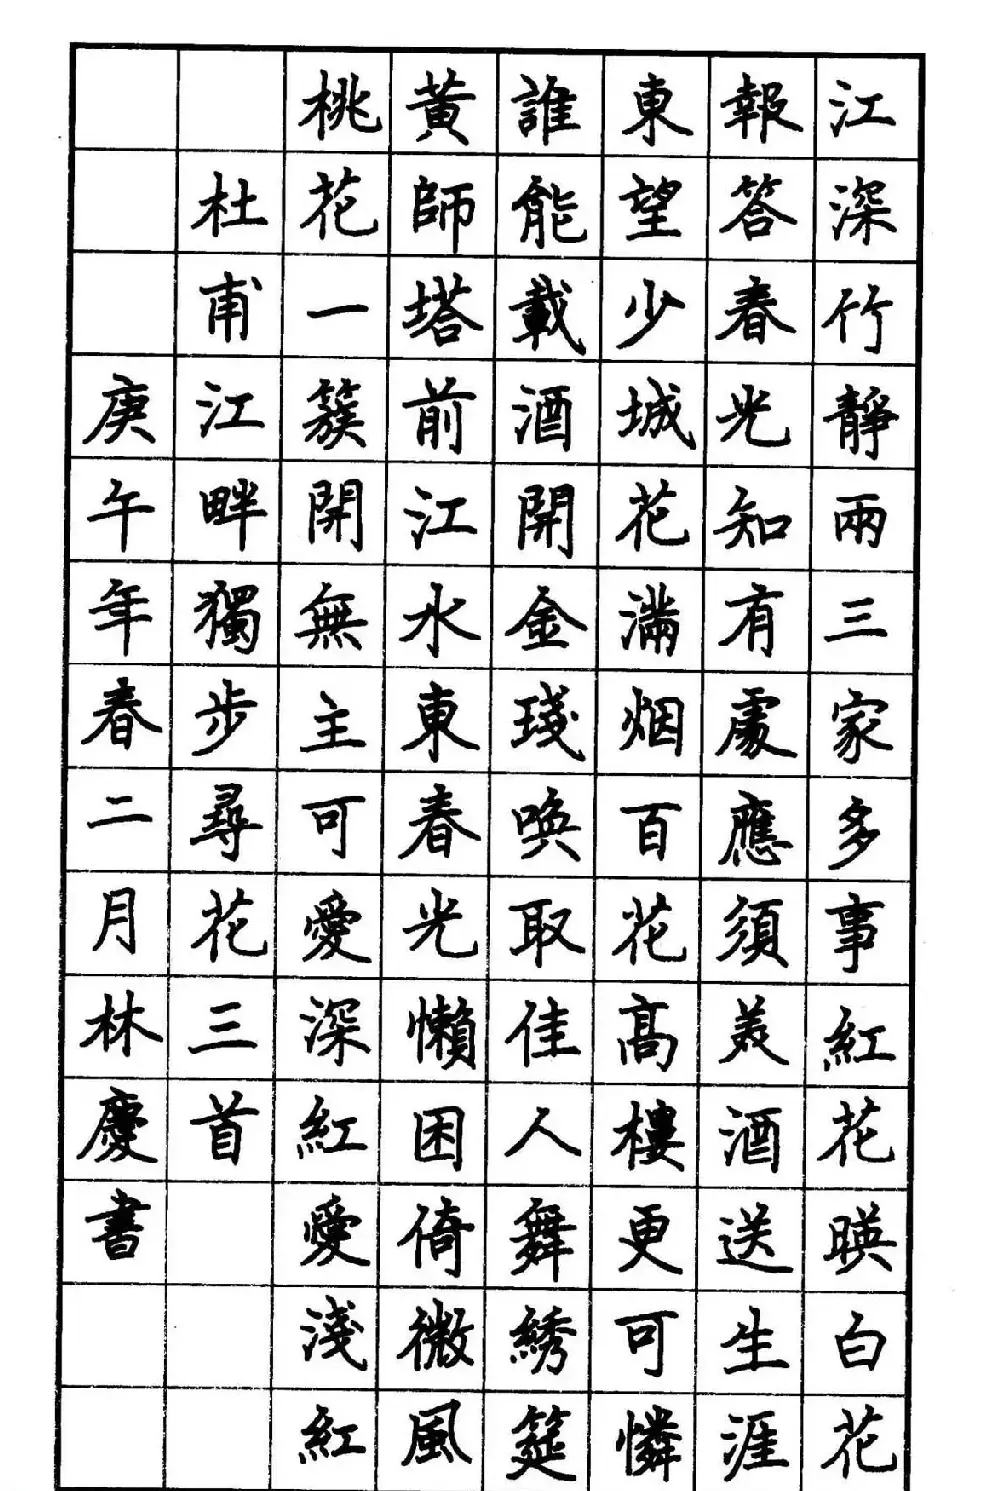 江深竹靜兩三家多事紅花暎白花
報答春光知有處應須美酒送生涯
東望少城花滿烟百花高樓更可憐
誰能載酒開金琖喚取佳人舞綉筵
黃師塔前江水東春光懶困倚微風
桃花一簇開無主可愛深紅愛淺紅
杜甫江畔獨步尋花三首
庚午年春二月林慶書